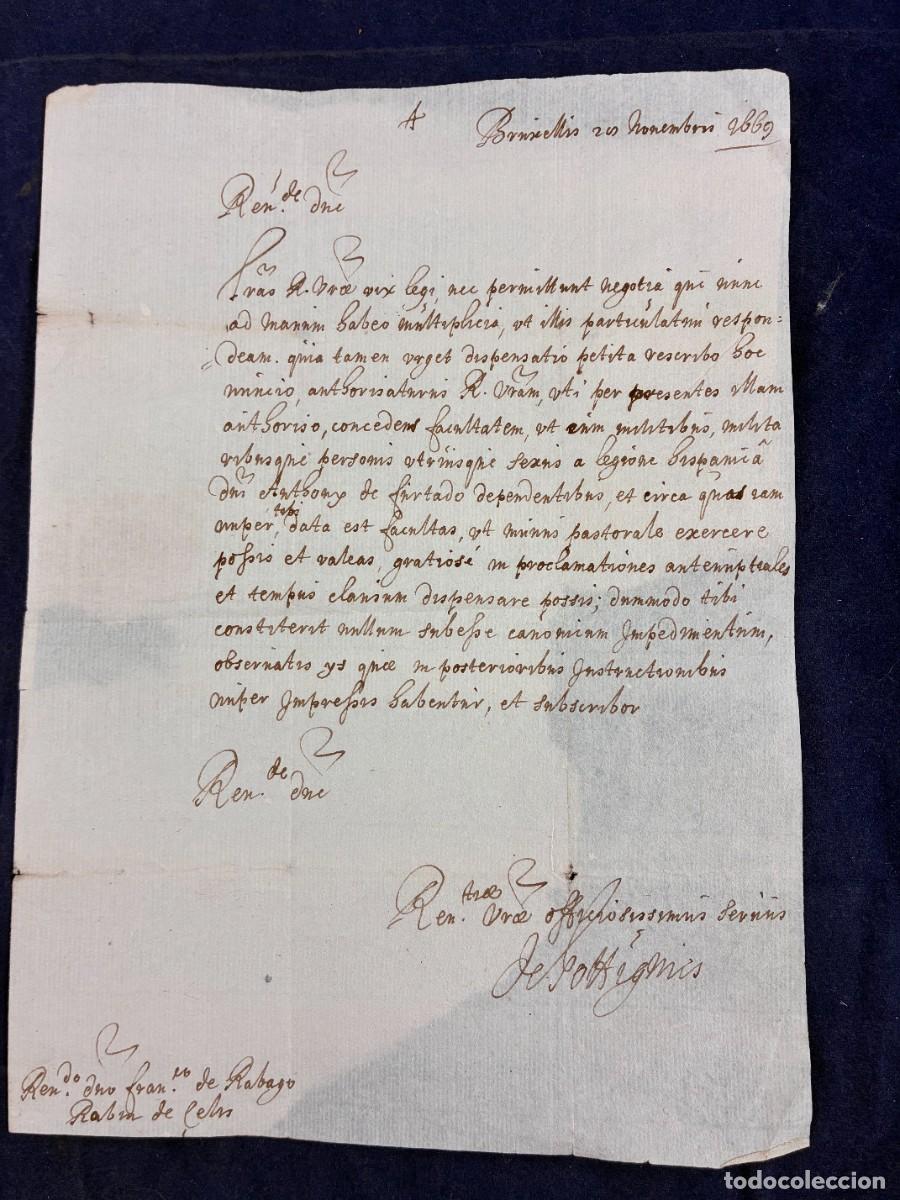 Bruxellis 20 Novembris 1669
Ren.de dne
Lras R. Vrae vix legi, nec permittunt negotia que nunc
ad manum habeo multiplicia, vt illis particulatim respon=
=deam. quia tamen vrget dispensatio petita rescribo hoc
nuncio, authorisaturus R. Vram, vti per presentes illam
authoriso, concedens facultatem, vt cum militibus, milita
ribusque personis vtriusque sexus a legione hispanica
dni Anthony de furtado dependentibus, et circa quas iam
nuper tibi data est facultas, vt munus pastorale exercere
possis et valeas, gratiose in proclamationes antenuptiales
et tempus clausum dispensare possis; dummodo tibi
constiterit nullum subesse canonicum Impedimentum,
observatis ys quae in posterioribus Instructionibus
nuper Impressis habentur, et subscribor
Ren.de dne
Ren.tiae Vrae officiosissimus servus
Ren.do dno fran.co de Rabago
Rabin de Celis
todocoleccion